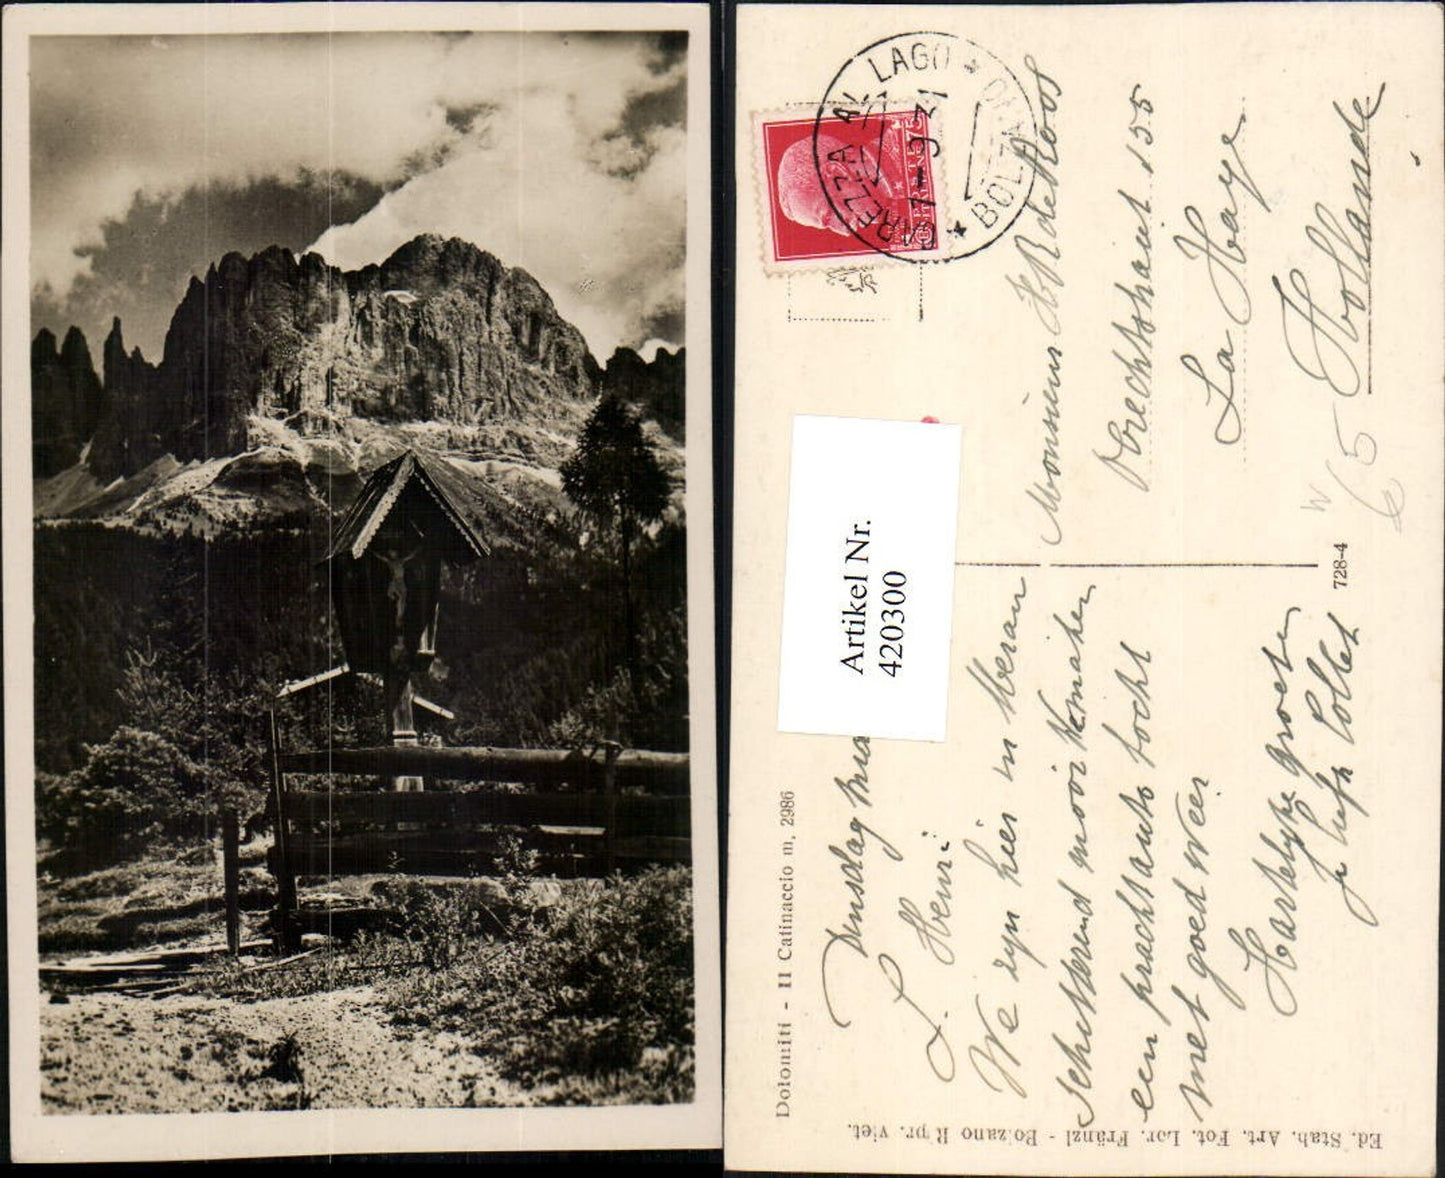 Dolomiti - Il Catinaccio m. 2986
Artikel Nr.
420300
Dinsdag
L. Henri.
We zyn hier in Meran
schitterend mooi
een prachtauto tocht
met goed weer
Hartelyke groeten
CAREZZA AL LAGO
BOLZANO
Monsieur H R de Roos
155
La Haye
Hollande
65
728-4
Ed. Stab. Art. Fot. Lor. Fränzl - Bolzano Ripr. viet.